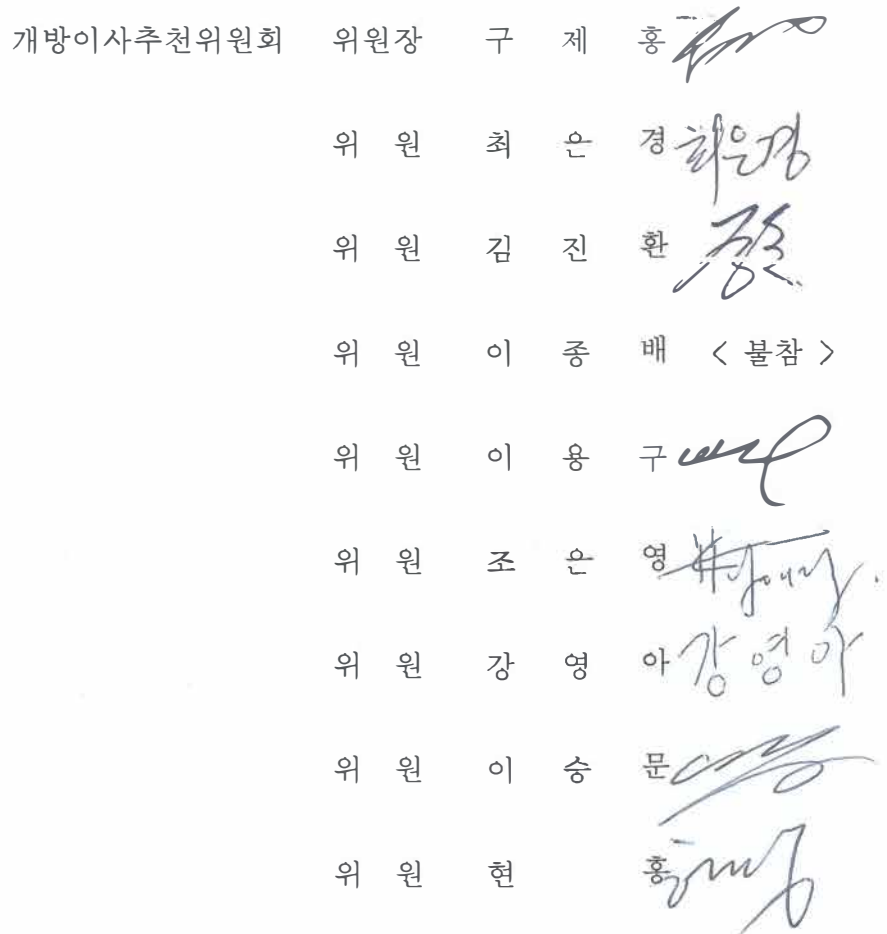 개방이사추천위원회 위원장 구 제 홍
위 원 최 은 경 최은경
위 원 김 진 환
위 원 이 종 배 < 불참 >
위 원 이 용 구
위 원 조 은 영
위 원 강 영 아 강영아
위 원 이 승 문
위 원 현 홍